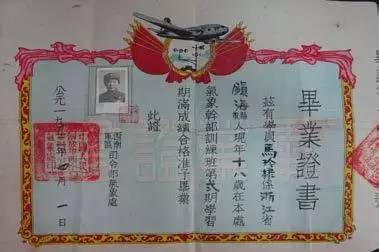 畢業證書
茲有學員馬 係浙江省
鎮海縣人現年十八歲在本處
氣象幹部訓練班第弍期學習
期滿成績合格准予畢業
此證
西南軍區司令部氣象處
公元一九五 年 月一日